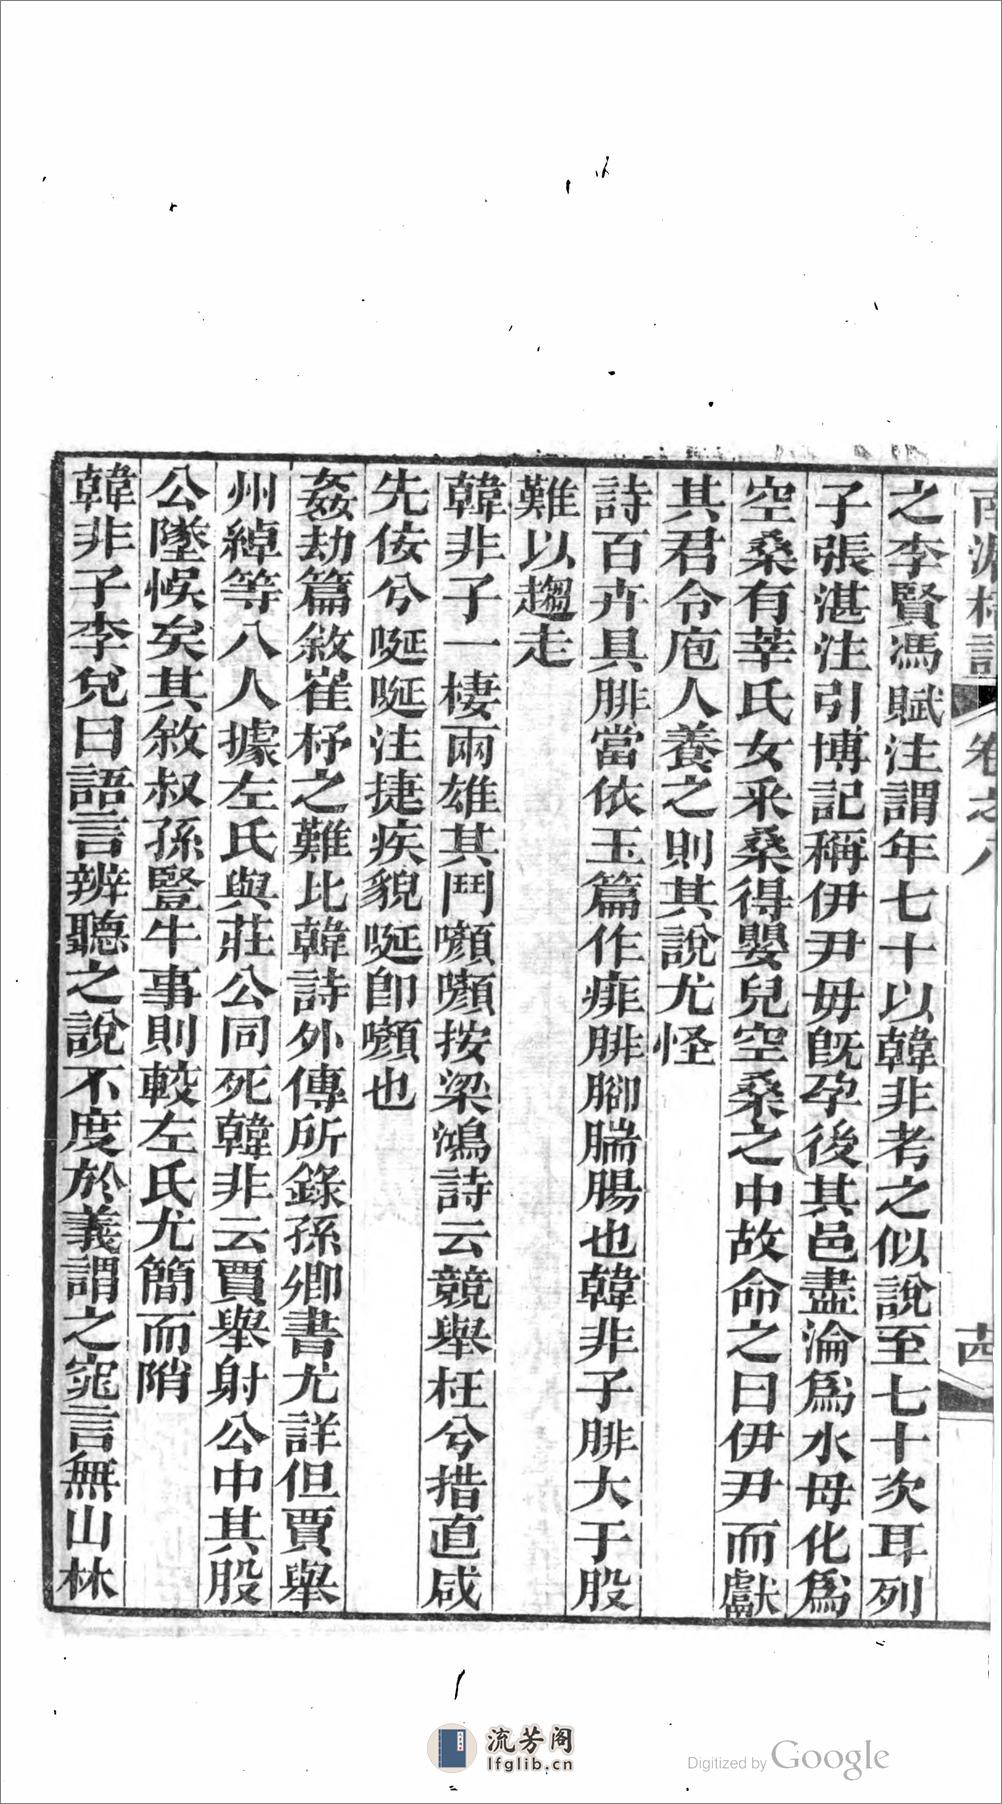 卷之八
之李賢馮賦注謂年七十以韓非考之似說至七十次耳列
子張湛注引博記稱伊尹母旣孕後其邑盡淪爲水母化爲
空桑有莘氏女采桑得嬰兒空桑之中故命之曰伊尹而獻
其君令庖人養之則其說尤怪
詩百卉具腓當依玉篇作痱腓腳腨腸也韓非子腓大于股
難以趨走
韓非子一棲兩雄其鬥㘖㘖按梁鴻詩云競舉枉兮措直咸
先佞兮唌唌注捷疾貌唌卽㘖也
姦劫篇敘崔杼之難比韓詩外傳所錄孫卿書尤詳但賈舉
州綽等八人據左氏與莊公同死韓非云賈舉射公中其股
公墜悞矣其敘叔孫豎牛事則較左氏尤簡而陗
韓非子李兌曰語言辨聽之說不度於義謂之窕言無山林
流芳阁
lfglib.cn
Digitized by Google